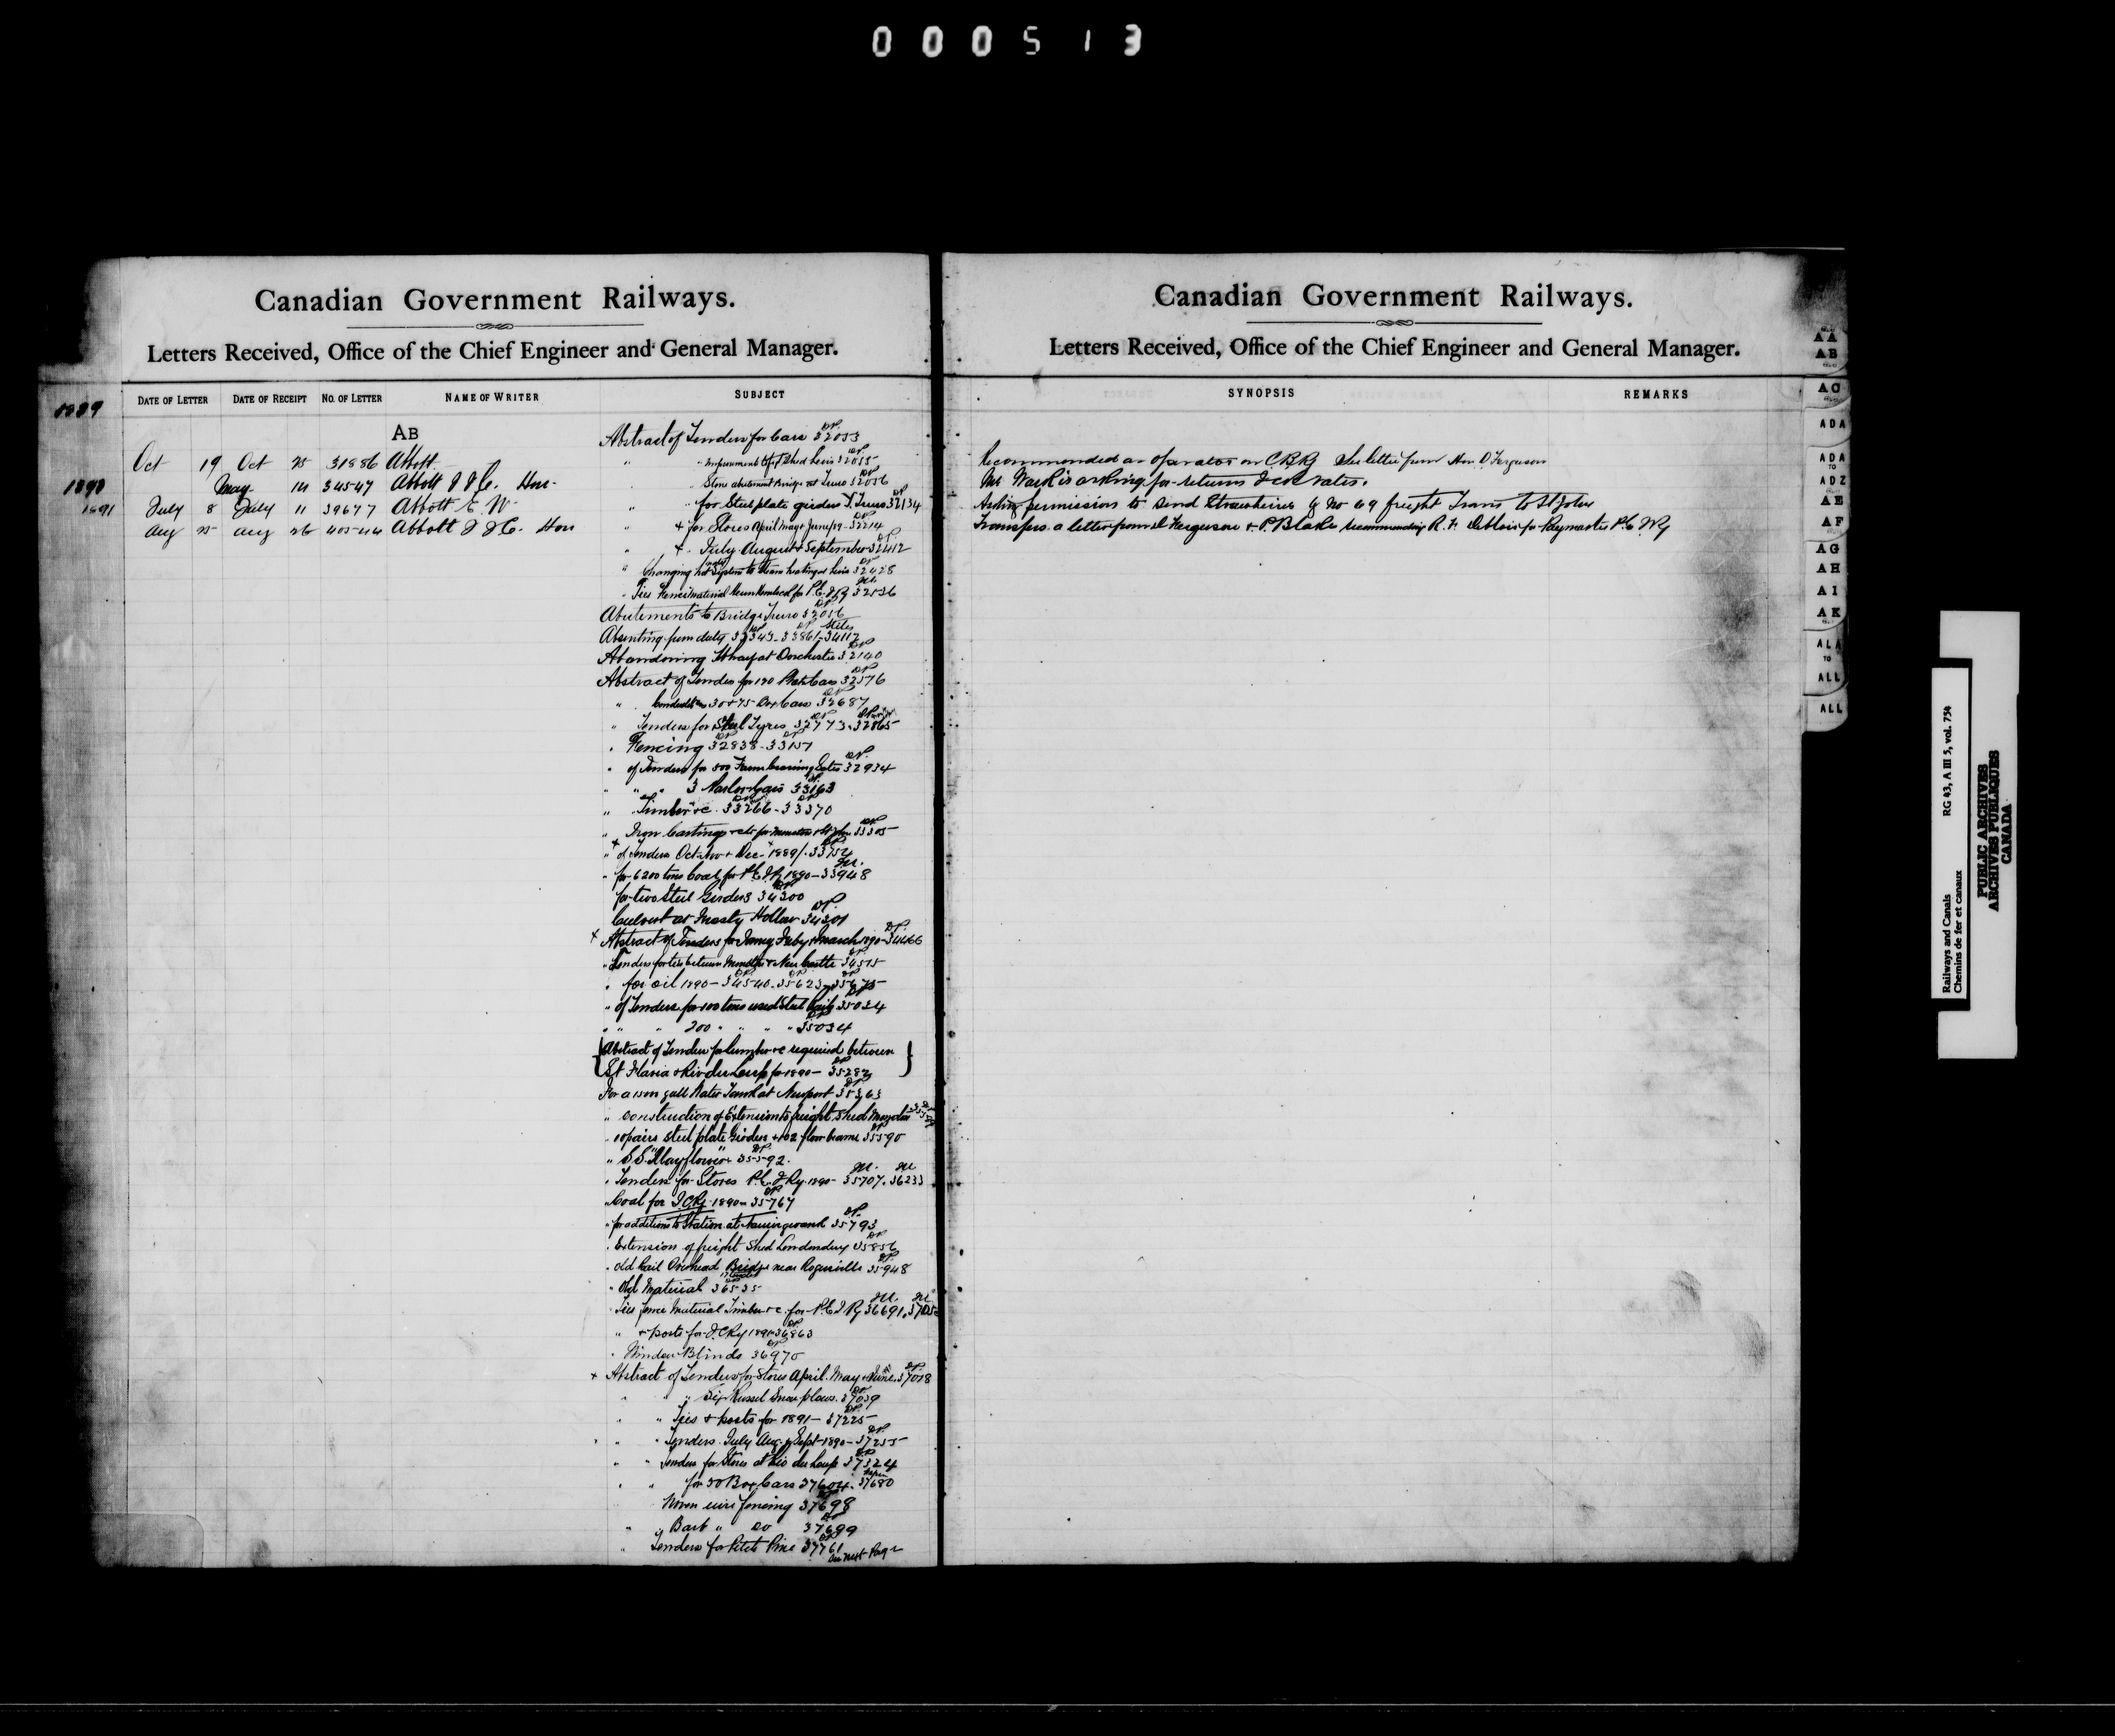 000513
Canadian Government Railways.
Letters Received, Office of the Chief Engineer and General Manager.
DATE OF LETTER DATE OF RECEIPT NO. OF LETTER NAME OF WRITER SUBJECT
1889
AB
Abstract of Tenders for Cars 32053
Oct 19 Oct 25 31886 Abbott
1890 May 14 34547 Abbott J J C. Hon
" Stone abutment Bridge at Truro 32056
1891 July 8 July 11 39677 Abbott E. W
" for Steel plate girders Truro 32134
Aug 25 Aug 26 40544 Abbott J J C. Hon
" + for Stores April May & June/89 - 32214
" + July August & September 32412
" Changing hot water System to steam heating at Levis 32428
Abutements to Bridge Truro 32056
Absenting from duty 33343-33861-34117
Abandoning Wharf at Dorchester 32140
Abstract of Tenders for 190 Cars 32576
" 30 & 75 Box Cars 32687
" Tenders for Steel Tyres 32773.32865
" Fencing 32838-33157
" of Tenders for 500 32934
" " " 3 33163
" Timber &c. 33266-33370
" Iron Castings 33305
" of Tenders Oct Nov & Dec 1889/. 33754
" for 6200 tons Coal for P.E.I.Ry 1890-33948
for two Steel Girders 34300
Culvert at Hollow 34301
+ Abstract of Tenders for Jany Feby & March 1890-34466
" Tenders for ties between Moncton & New Castle 34515
" for oil 1890-34540.35623.35675
" of Tenders for 100 tons used Steel Rails 35034
" " " 200 " " " " 35034
{Abstract of Tender for lumber &c required between }
{St Flavia & Riv du Loup for 1890- 35282
For a 15m gall Water Tank at Newport 35363
" construction of Extension to freight shed Moncton
" 10 pairs steel plate Girders & 102 floor beams 35590
" S.S. "Mayflower" 35592.
" Tenders for Stores P.E.I Ry. 1890- 35707.36233
" Coal for I.C.Ry. 1890- 35767
" for additions to Station at 35793
" Extension of freight Shed Londonderry 35856
" old Rail Overhead Bridge near Rogersville 35948
" Old Material 36535
" Ties fence Material Timber &c. for P.E.I. Ry 36691.
" & posts for I.C.Ry 1891 36863
" Window Blinds 36970
+ Abstract of Tenders for Stores April. May & June. 37018
" " " Six Russel Snow plows. 37039
" " Ties & posts for 1891- 37225
" " Tenders. July Aug. & Sept 1890-37255
" " Tenders for Stores at Riv du Loup 37324
" " for 50 Box Cars 37604. 37680
Woven wire fencing 37698
" " Barb " Do 37699
" Tenders for Pitch Pine 37761
See next Page
Canadian Government Railways.
Letters Received, Office of the Chief Engineer and General Manager.
SYNOPSIS REMARKS
Recommended as operator on C.B.R See letter from Hon D Ferguson
Mr Ward is asking for returns
Asking permission to send by No 69 freight Train to St John
Transfers a letter from D Ferguson & P. Blake recommending R. F. DeBlois for Paymaster P.E.I. Ry
AA
AB
AC
ADA
ADA
TO
ADZ
AE
AF
AG
AH
AI
AK
ALA
TO
ALL
ALL
Railways and Canals RG 43, A III 5, vol. 754
Chemins de fer et canaux
PUBLIC ARCHIVES
ARCHIVES PUBLIQUES
CANADA